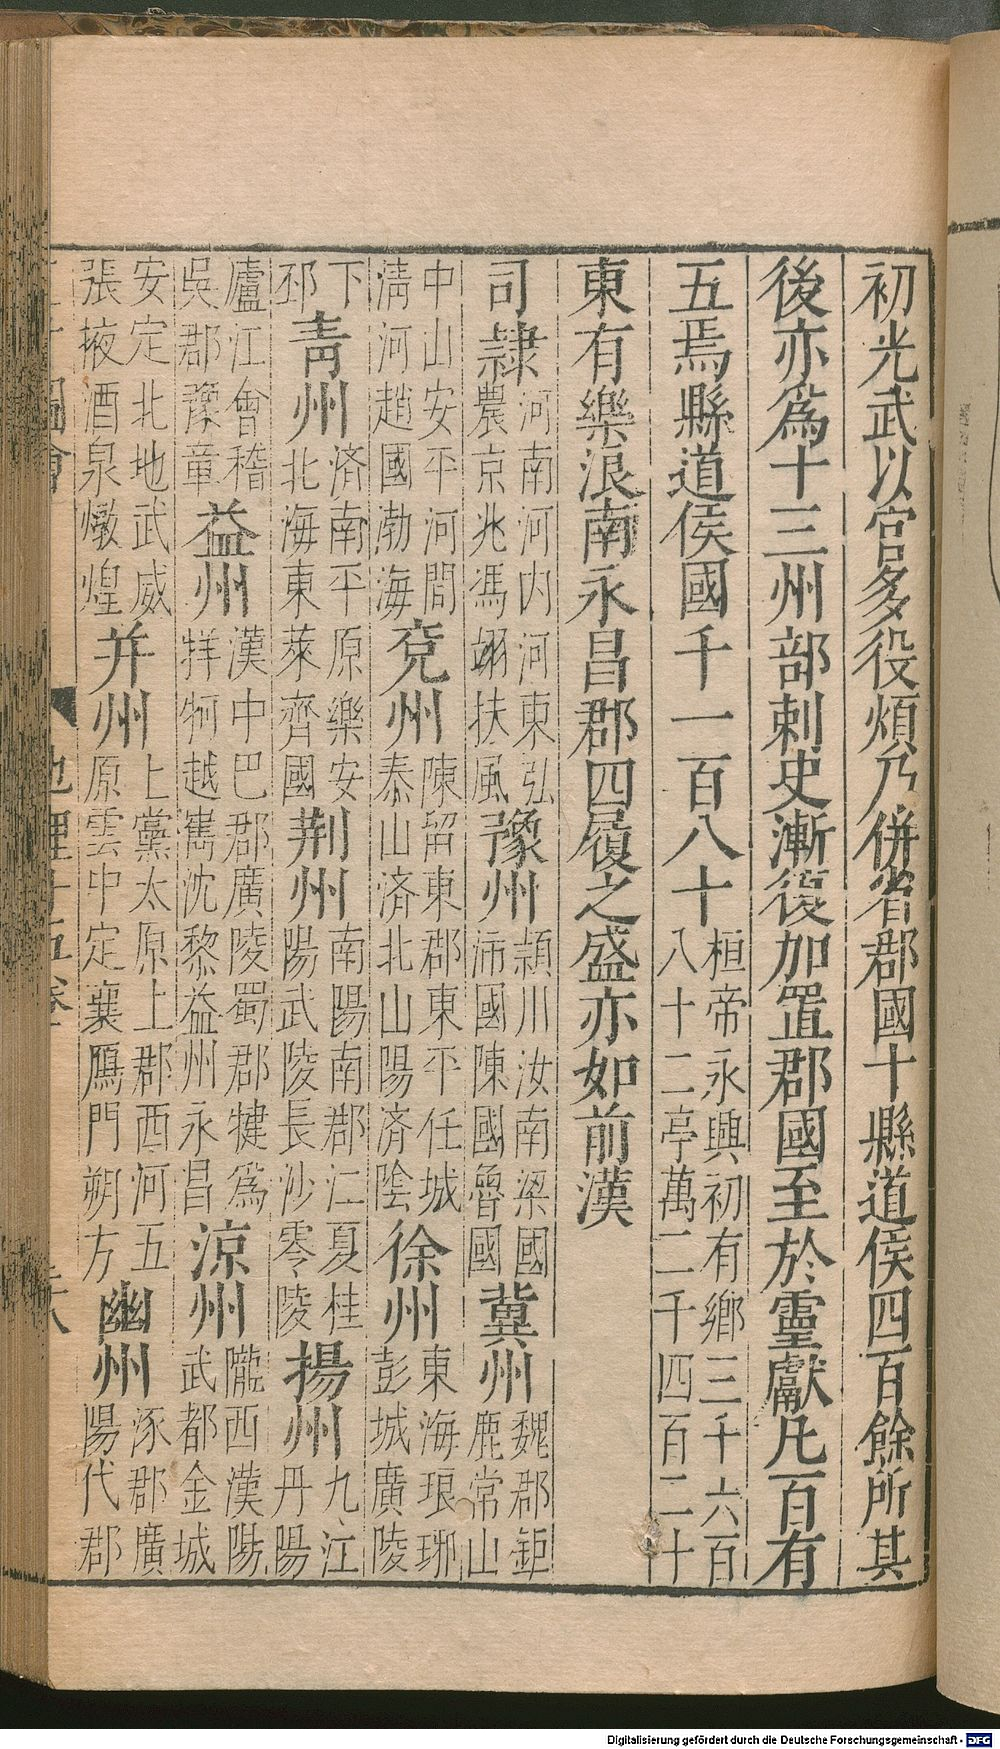 初光武以官多役煩乃併省郡國十縣道侯四百餘所其
後亦爲十三州部刺史漸復加置郡國至於靈獻凡百有
五焉縣道侯國千一百八十桓帝永興初有鄉三千六百八十二亭萬二千四百二十
東有樂浪南永昌郡四履之盛亦如前漢
司隸河南河内河東弘農京兆馮翊扶風豫州潁川汝南梁國沛國陳國魯國冀州魏郡鉅鹿常山
中山安平河間清河趙國渤海兗州陳留東郡東平任城泰山濟北山陽濟陰徐州東海琅琊彭城廣陵
下邳青州濟南平原樂安北海東萊齊國荆州南陽南郡江夏桂陽武陵長沙零陵揚州九江丹陽
廬江會稽吳郡豫章益州漢中巴郡廣陵蜀郡犍爲牂牁越嶲沈黎益州永昌涼州隴西漢陽武都金城
安定北地武威張掖酒泉燉煌并州上黨太原上郡西河五原雲中定襄鴈門朔方幽州涿郡廣陽代郡
圖會 地理十五卷
Digitalisierung gefördert durch die Deutsche Forschungsgemeinschaft - DFG